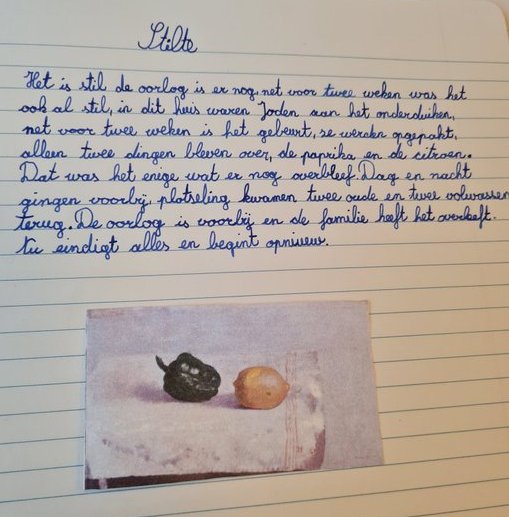 Stilte
Het is stil de oorlog is er nog, net voor twee weken was het
ook al stil, in dit huis waren Joden aan het onderduiken,
net voor twee weken is het gebeurt, ze werden opgepakt.
alleen twee dingen bleven over, de paprika en de citroen.
Dat was het enige wat er nog overbleef. Dag en nacht
gingen voorbij, plotseling kwamen twee oude en twee volwassen
terug. De oorlog is voorbij en de familie heeft het overleeft.
Nu eindigt alles en begint opnieuw.